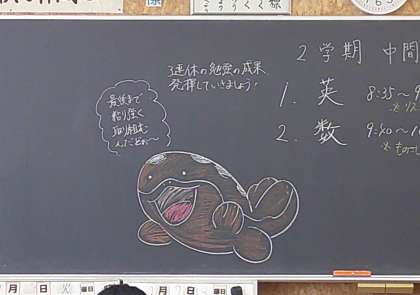 2学期 中間
3連休の勉強の成果、
発揮していきましょう!
最後まで
粘り強く
取り組む
んだどぉ〜
1. 英 8:35〜9
2. 数 9:40〜10
月 日 火 曜日
月 日 曜日